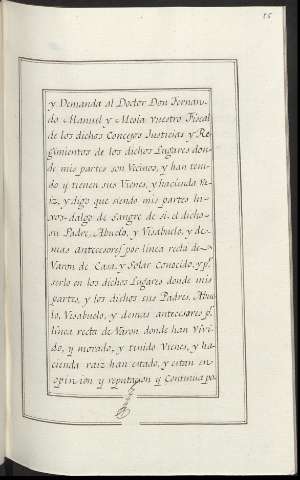 16
y Demanda al Doctor Don Fernan-
do Manuel y Mesia vuestro Fiscal
de los dichos Concejos Justicias y Re-
gimientos de los dichos Lugares don-
de mis partes son Vicinos, y han teni-
do y tienen sus Vienes, y hacienda Ra-
iz, y digo que siendo mis partes hi-
xos-dalgo de Sangre de si, el dicho
su Padre, Abuelo, y Visabuelo, y de-
mas antecesores por linea recta de
Varon de Casa, y Solar Conocido, y pr.
serlo en los dichos Lugares donde mis
partes, y los dichos sus Padres, Abue-
lo, Visabuelo, y demas antecesores pr.
linea recta de Varon, donde han Vivi-
do, y morado, y tenido Vienes, y ha-
cienda raiz han estado, y estan en
opinion y reputacion y Continua po-